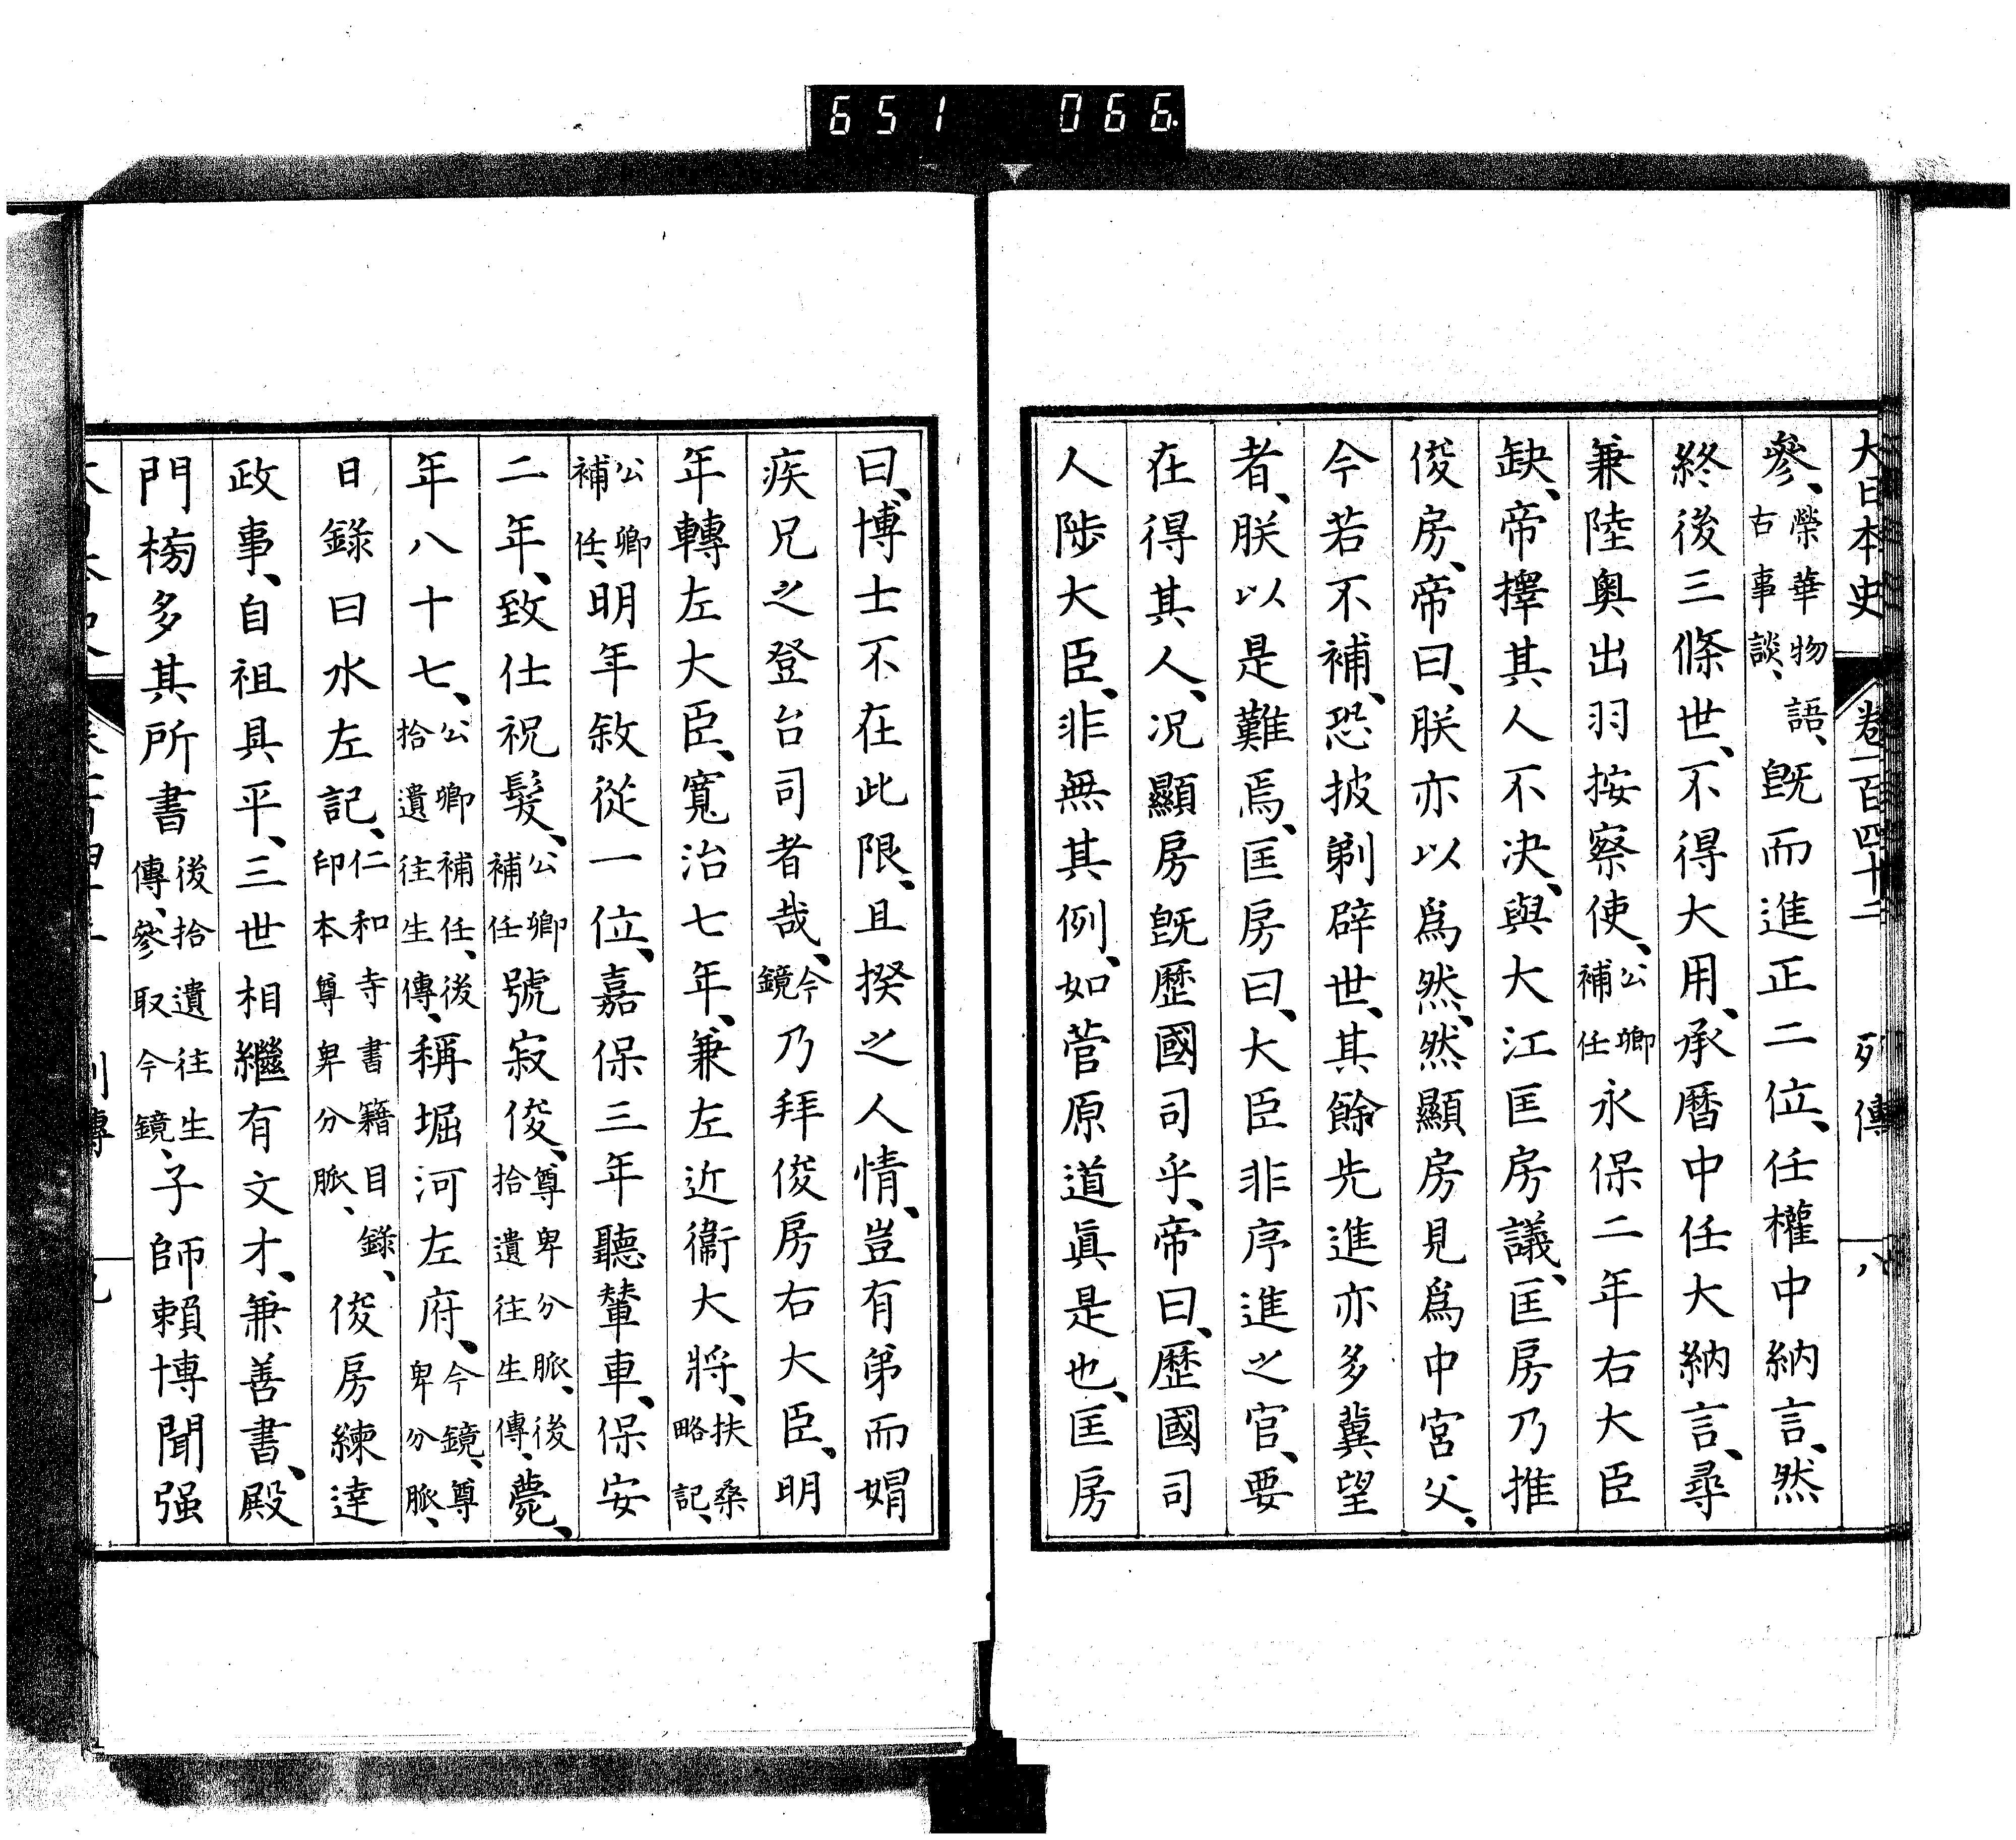 651 066
大日本史 卷一百四十二 列傳 八
參、榮華物語、古事談、既而進正二位、任權中納言、然
終後三條世、不得大用、承曆中任大納言、尋
兼陸奧出羽按察使、公卿補任永保二年右大臣
缺、帝擇其人不决、與大江匡房議、匡房乃推
俊房、帝曰、朕亦以爲然、然顯房見爲中宮父、
今若不補、恐披剃辟世、其餘先進亦多冀望
者、朕以是難焉、匡房曰、大臣非序進之官、要
在得其人、况顯房既歷國司乎、帝曰、歷國司
人陟大臣、非無其例、如菅原道眞是也、匡房
曰、博士不在此限、且揆之人情、豈有弟而娟
疾兄之登台司者哉、今鏡乃拜俊房右大臣、明
年轉左大臣、寬治七年、兼左近衞大將、扶桑略記、
公卿補任、明年敘從一位、嘉保三年聽輦車、保安
二年、致仕祝髮、公卿補任號寂俊、尊卑分脈、後拾遺往生傳、薨、
年八十七、公卿補任、後拾遺往生傳、稱堀河左府、今鏡、尊卑分脈、
日錄曰水左記、仁和寺書籍目錄、印本尊卑分脈、俊房練達
政事、自祖具平、三世相繼有文才、兼善書、殿
門榜多其所書後拾遺往生傳、參取今鏡、子師賴博聞强